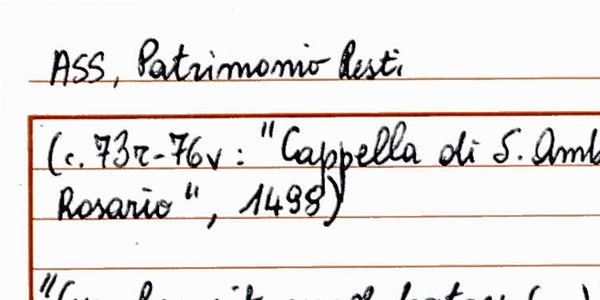 ASS, Patrimonio Resti
(c. 73r-76v : "Cappella di S. Amb
Rosario", 1498)